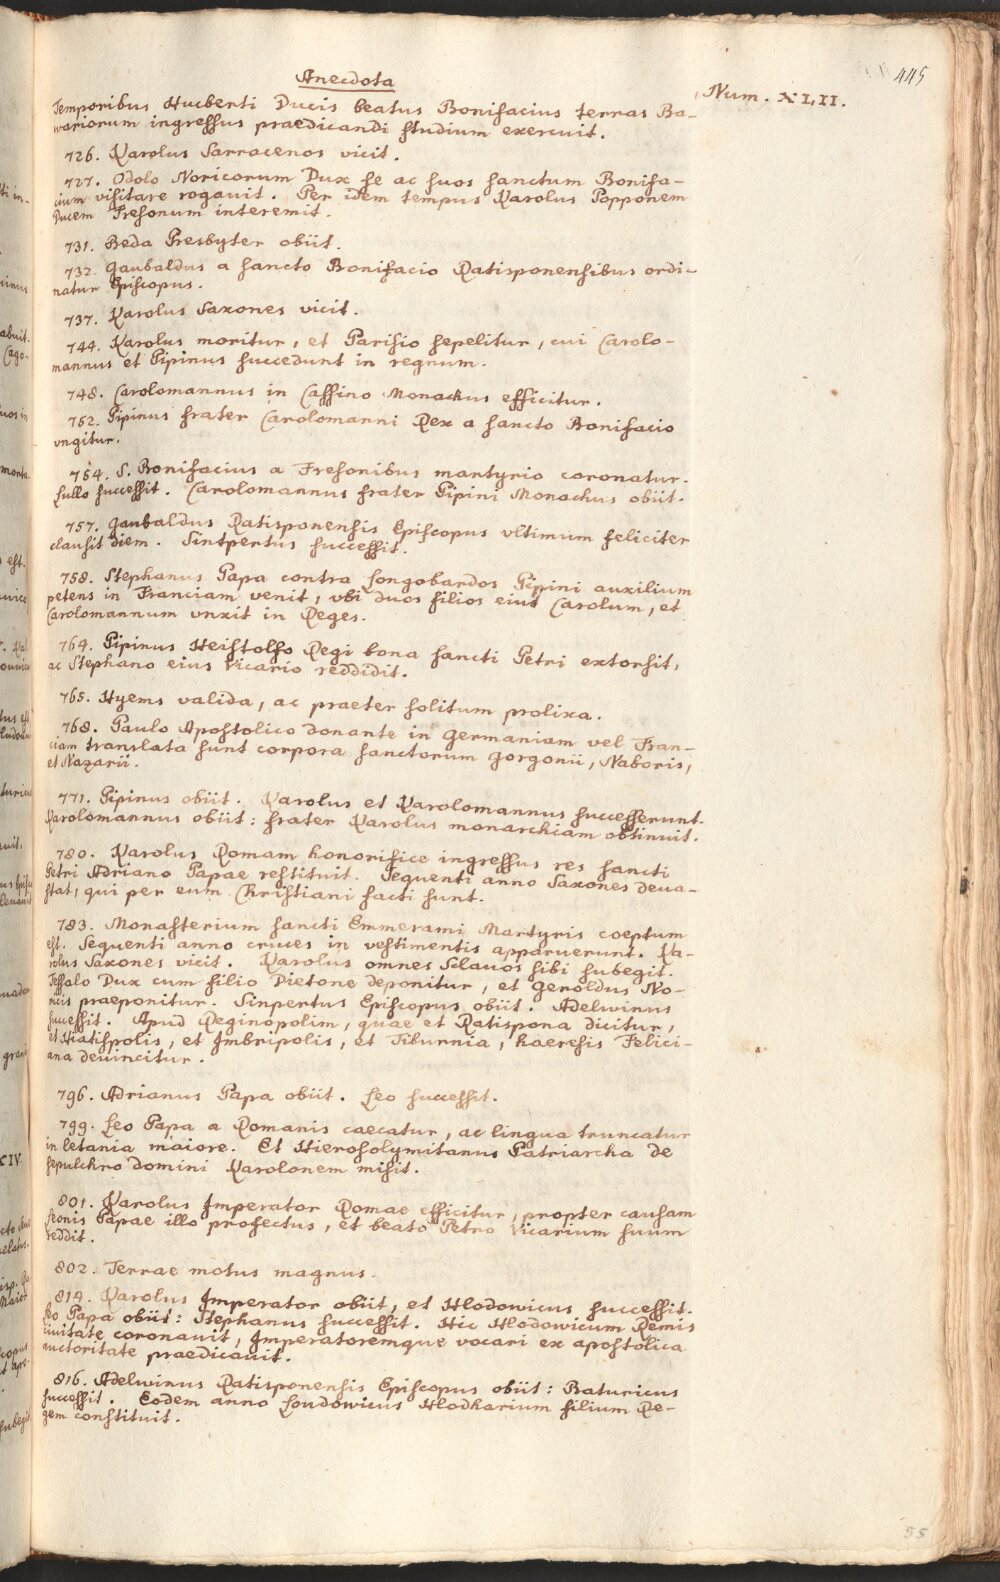 445
Anecdota
Num. XLII.
Temporibus Hucberti Ducis beatus Bonifacius terras Ba-
wariorum ingreſſus praedicandi ſtudium exercuit.
726. Karolus Sarracenos vicit.
727. Odolo Noricorum Dux ſe ac ſuos ſanctum Bonifa-
cium viſitare rogavit. Per idem tempus Karolus Popponem
Ducem Freſonum interemit.
731. Beda Presbyter obiit.
732. Gaubaldus a ſancto Bonifacio Ratisponenſibus ordi-
natur Epiſcopus.
737. Karolus Saxones vicit.
744. Karolus moritur, et Pariſio ſepelitur, cui Carolo-
mannus et Pipinus ſuccedunt in regnum.
748. Carolomannus in Caſſino Monachus efficitur.
752. Pipinus frater Carolomanni Rex a ſancto Bonifacio
vngitur.
754. S. Bonifacius a Freſonibus martyrio coronatur.
Lullo ſucceſſit. Carolomannus frater Pipini Monachus obiit.
757. Gaubaldus Ratisponenſis Epiſcopus vltimum feliciter
clauſit diem. Sintpertus ſucceſſit.
758. Stephanus Papa contra Longobardos Pipini auxilium
petens in Franciam venit, vbi duos filios eius Carolum, et
Carolomannum vnxit in Reges.
764. Pipinus Heiſtolfo Regi bona ſancti Petri extorſit,
ac Stephano eius Vicario reddidit.
765. Hyems valida, ac praeter ſolitum prolixa.
768. Paulo Apoſtolico donante in Germaniam vel Fran-
ciam translata ſunt corpora ſanctorum Gorgonii, Naboris,
et Nazarii.
771. Pipinus obiit. Karolus et Karolomannus ſucceſſerunt.
Karolomannus obiit: frater Karolus monarchiam obtinuit.
780. Karolus Romam honorifice ingreſſus res ſancti
Petri Adriano Papae reſtituit. Sequenti anno Saxones deua-
ſtat, qui per eum Chriſtiani facti ſunt.
783. Monaſterium ſancti Emmerami Martyris coeptum
eſt. Sequenti anno cruces in veſtimentis apparuerunt. Ka-
rolus Saxones vicit. Karolus omnes Sclauos ſibi ſubegit.
Teſſalo Dux cum filio Dietone deponitur, et Geroldus No-
ricis praeponitur. Sinpertus Epiſcopus obiit. Adelwinus
ſucceſſit. Apud Reginopolim, quae et Ratispona dicitur,
et Hiatiſpolis, et Imbripolis, et Tiburnia, haereſis Felici-
ana deuincitur.
796. Adrianus Papa obiit. Leo ſucceſſit.
799. Leo Papa a Romanis caecatur, ac lingua truncatur
in letania maiore. Et Hieroſolymitanus Patriarcha de
ſepulchro domini Karolonem miſit.
801. Karolus Imperator Romae efficitur, propter cauſam
Leonis Papae illo profectus, et beato Petro Vicarium ſuum
reddit.
802. Terrae motus magnus.
814. Karolus Imperator obiit, et Hlodowicus ſucceſſit.
Leo Papa obiit: Stephanus ſucceſſit. Hic Hlodowicum Remis
ciuitate coronauit, Imperatoremque vocari ex apoſtolica
auctoritate praedicauit.
816. Adelwinus Ratisponenſis Epiſcopus obiit: Baturicus
ſucceſſit. Eodem anno Loudowicus Hlodharium filium Re-
gem conſtituit.
55